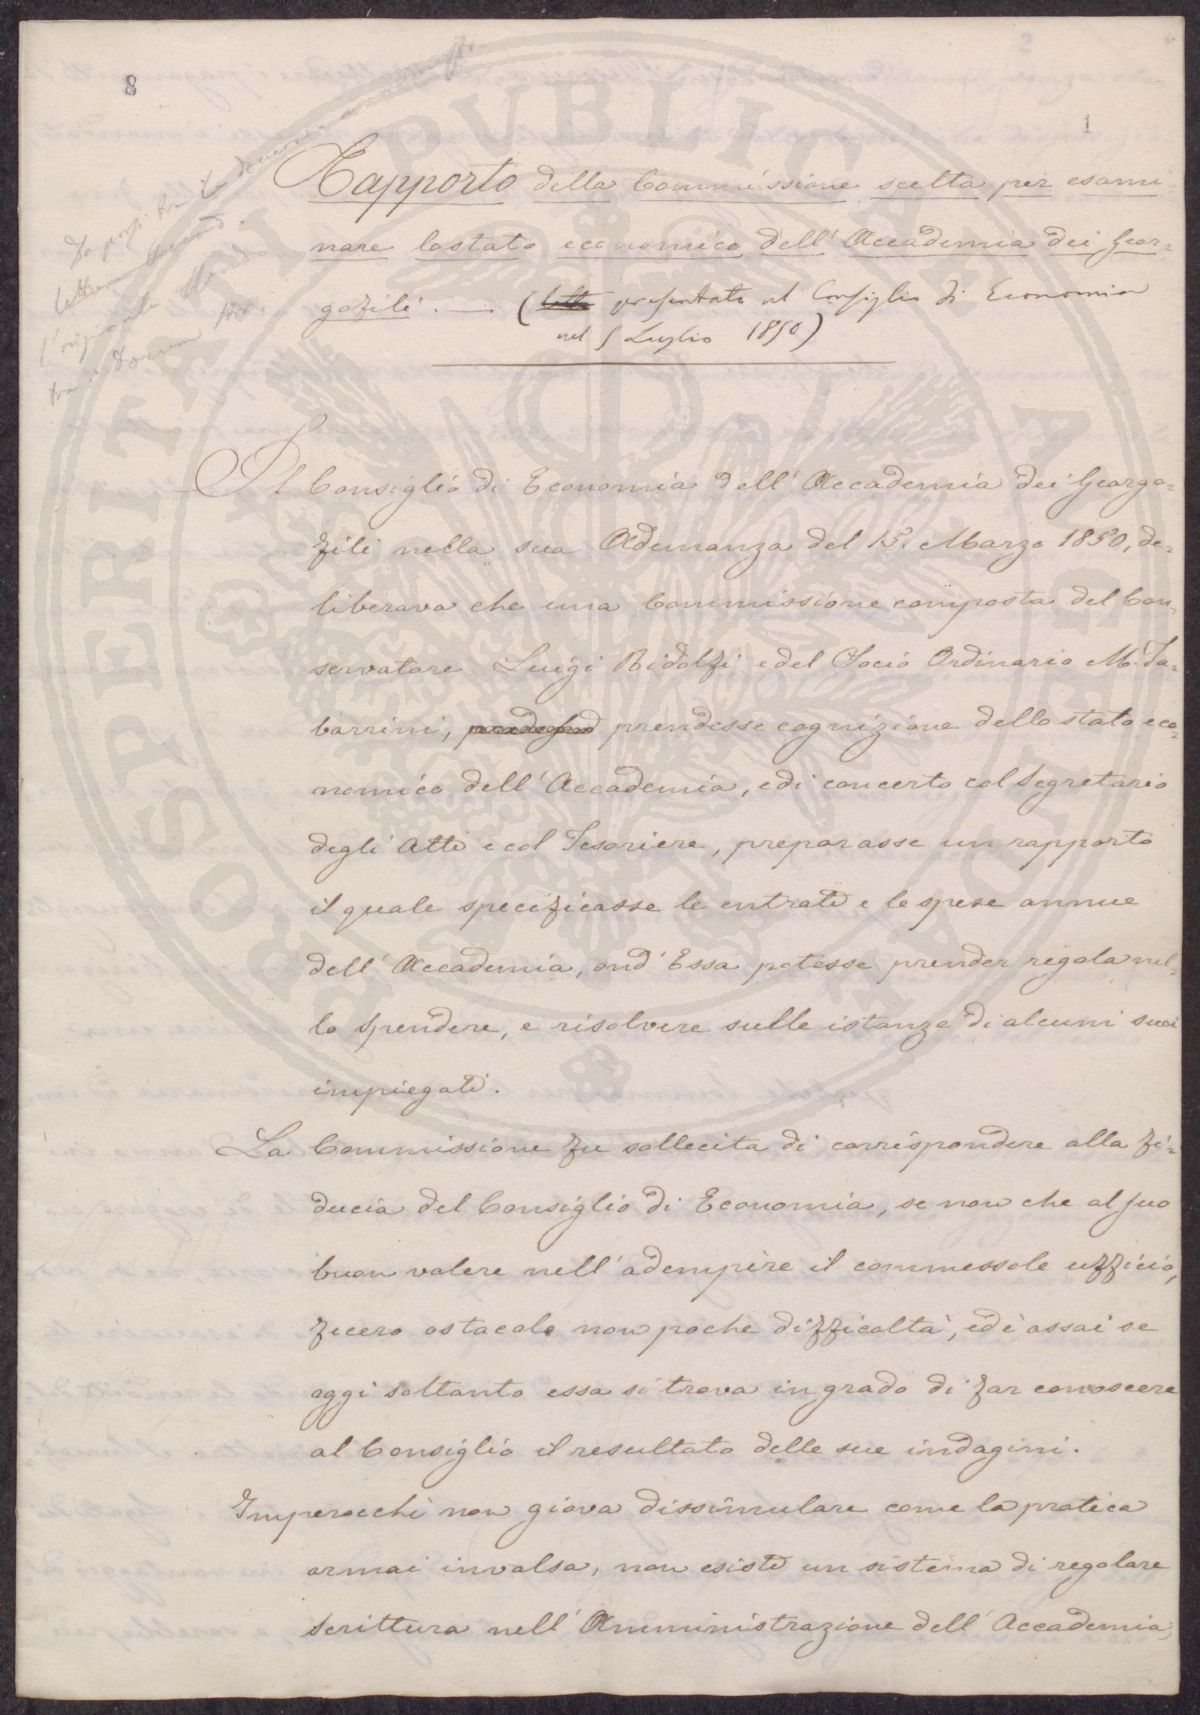 8
1
Rapporto della Commissione scelta per esami
nare lo stato economico dell' Accademia dei Geor-
gofili. — (letto presentato al Consiglio di Economia
nel 5 Luglio 1850)
Il Consiglio di Economia dell' Accademia dei Georgo-
fili nella sua Adunanza del 15. Marzo 1850, de-
liberava che una Commissione composta del Con-
servatore Luigi Ridolfi e del Socio Ordinario M. Ta-
barrini, prendesse cognizione dello stato eco-
nomico dell' Accademia, e di concerto col Segretario
degli Atti e col Tesoriere, preparasse un rapporto
il quale specificasse le entrate e le spese annue
dell' Accademia, ond' Essa potesse prender regola nel-
lo spendere, e risolvere sulle istanze di alcuni suoi
impiegati.
La Commissione fu sollecita di corrispondere alla fi-
ducia del Consiglio di Economia, se non che al suo
buon volere nell' adempire il commessole ufficio,
fecero ostacolo non poche difficoltà, ed è assai se
oggi soltanto essa si trova in grado di far conoscere
al Consiglio il resultato delle sue indagini.
Imperocchè non giova dissimulare come la pratica
ormai invalsa, non esiste un sistema di regolare
scrittura nell' Amministrazione dell' Accademia,
PROSPERITATI PUBLICAE AUGENDAE